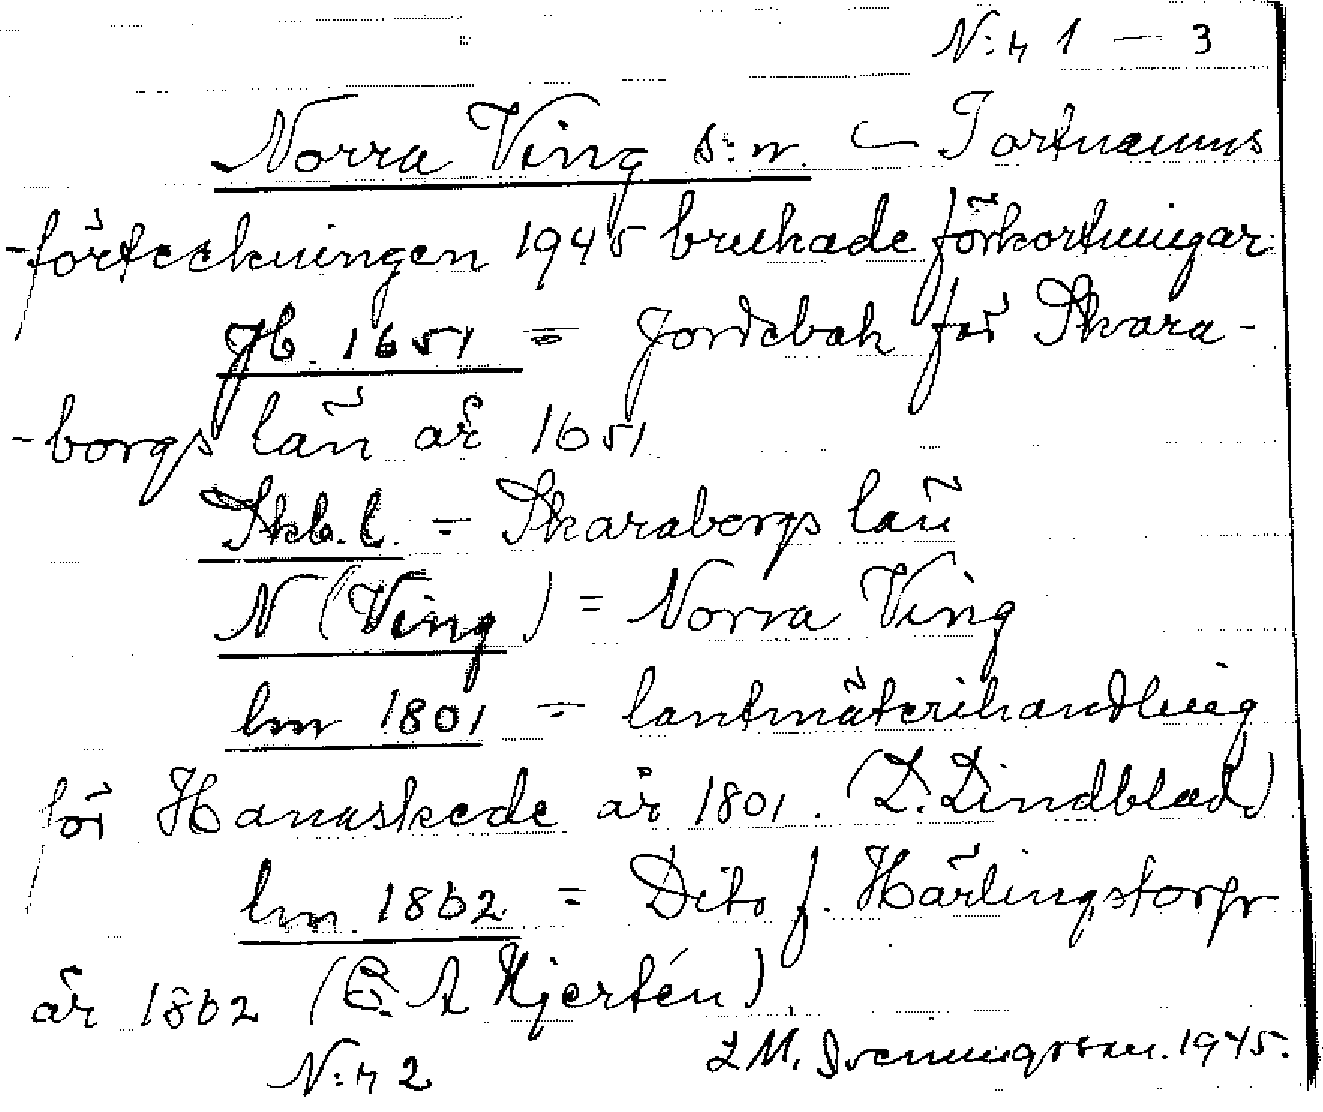 N:r 1 — 3
Norra Ving s:n. — I ortnamns
-förteckningen 1945 brukade förkortningar
Jb. 1651 = Jordebok för Skara-
-borgs län år 1651
Skb. l. = Skaraborgs län
N (Ving) = Norra Ving
lm 1801 = lantmäterihandling
för Hanaskede år 1801. (L. Lindblad)
lm. 1862 = Dito f. Härlingstorp
år 1862 (C. A Hjertén).
L M. Svenungsson. 1945.
N:r 2